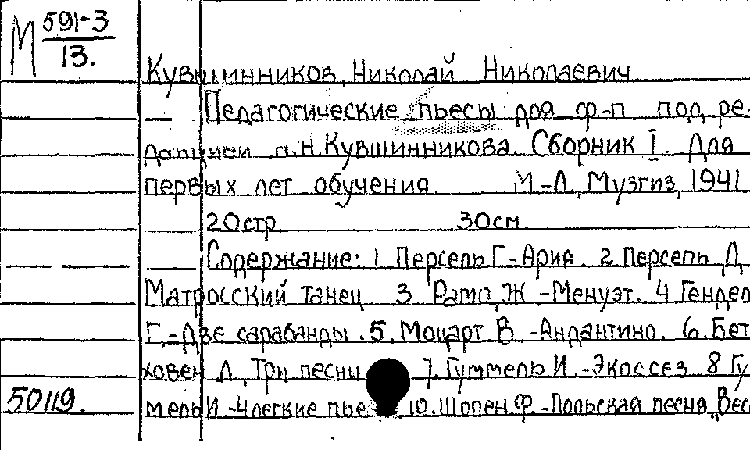 М 591-3
13.
Кувшинников, Николай Николаевич
Педагогические пьесы для ф-п под ре-
дакцией Н.Н.Кувшинникова. Сборник I. Для
первых лет обучения. М.-Л, Музгиз, 1941
20стр 30см
Содержание: 1. Персель Г-Ария. 2 Персель Д
Матросский танец 3. Рамо, Ж -Менуэт. 4 Гендел
Г.-Две сарабанды. 5. Моцарт В -Андантино. 6. Бет
ховен Л, Три песни 7. Гуммель И.-Экоссез 8 Гу
50119. мель И -Легкие пье 10. Шопен Ф -Польская песня „Вес